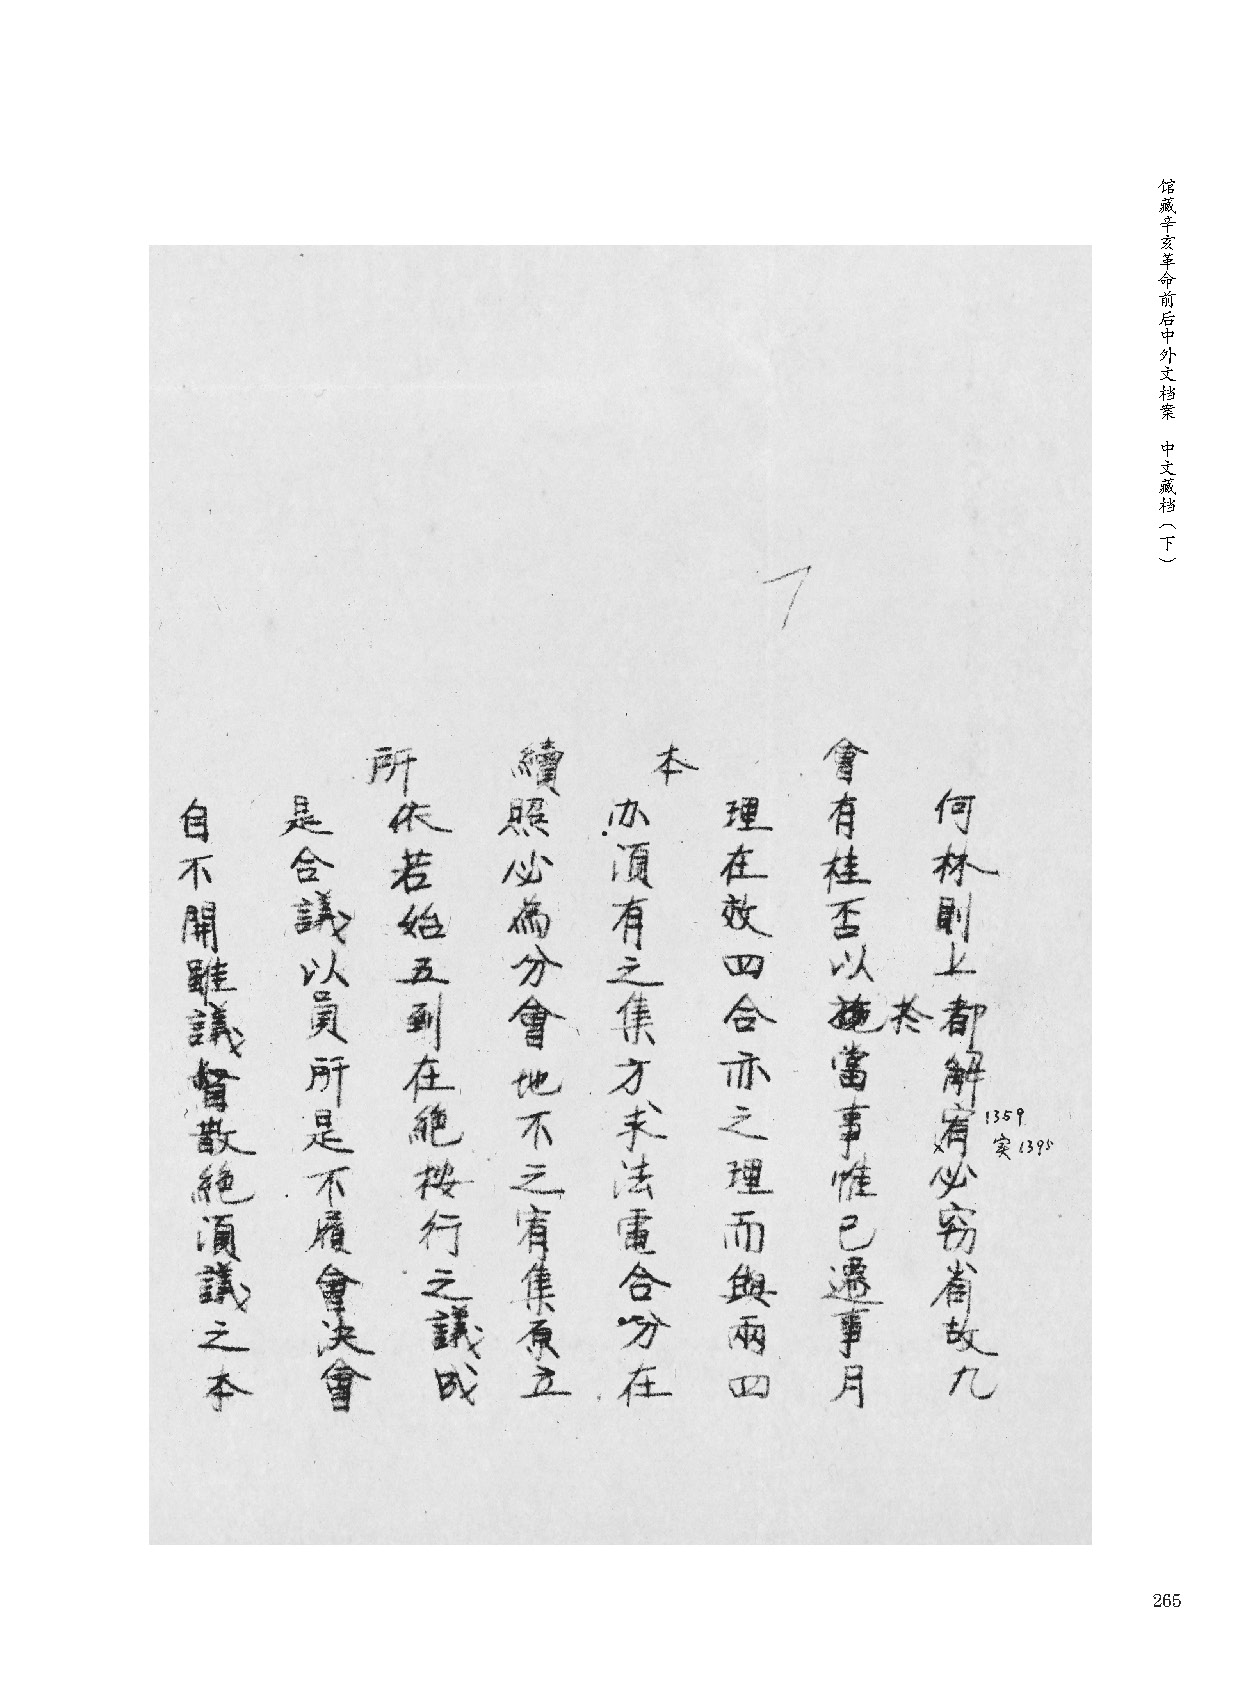 馆藏辛亥革命前后中外文档案 中文藏档（下）
何林則上都解宥必窃耑故九
1359
实1395
於
會有桂否以當事惟已還事月
理在效四合亦之理而與兩四
本
办須有之集方求法電合分在
續照必為分會地不之宥集原立
所依若始五到在絕按行之議成
是合議以員所是不履會決會
自不開雖議督散絕須議之本
265